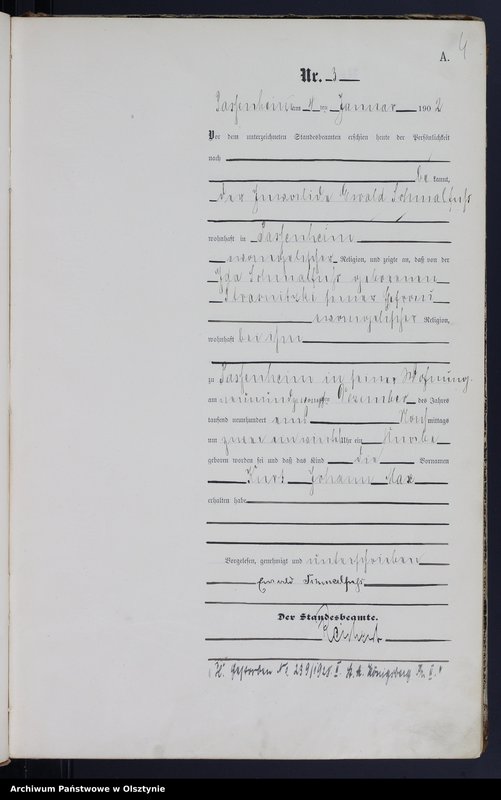 A. 4
Nr. 3
Passenheim am 4 ten Januar 1902
Vor dem unterzeichneten Standesbeamten erschien heute der Persönlichkeit
nach
be kannt,
der Invalide Ewald Schmalfuß
wohnhaft in Passenheim
evangelischer Religion, und zeigte an, daß von der
Ida Schmalfuß geborenen
seiner Ehefrau
evangelischer Religion,
wohnhaft bei ihm
zu Passenheim in seiner Wohnung
am neunundzwanzigsten Dezember des Jahres
tausend neunhundert eins Nachmittags
um zwei einviertel Uhr ein Knabe
geboren worden sei und daß das Kind die Vornamen
Kurt Johann Max
erhalten habe
Vorgelesen, genehmigt und unterschrieben
Ewald Schmalfuß
Der Standesbeamte.
Gestorben Nr. 239/1920. II. St. A. Königsberg Pr. II.
Archiwum Państwowe w Olsztynie